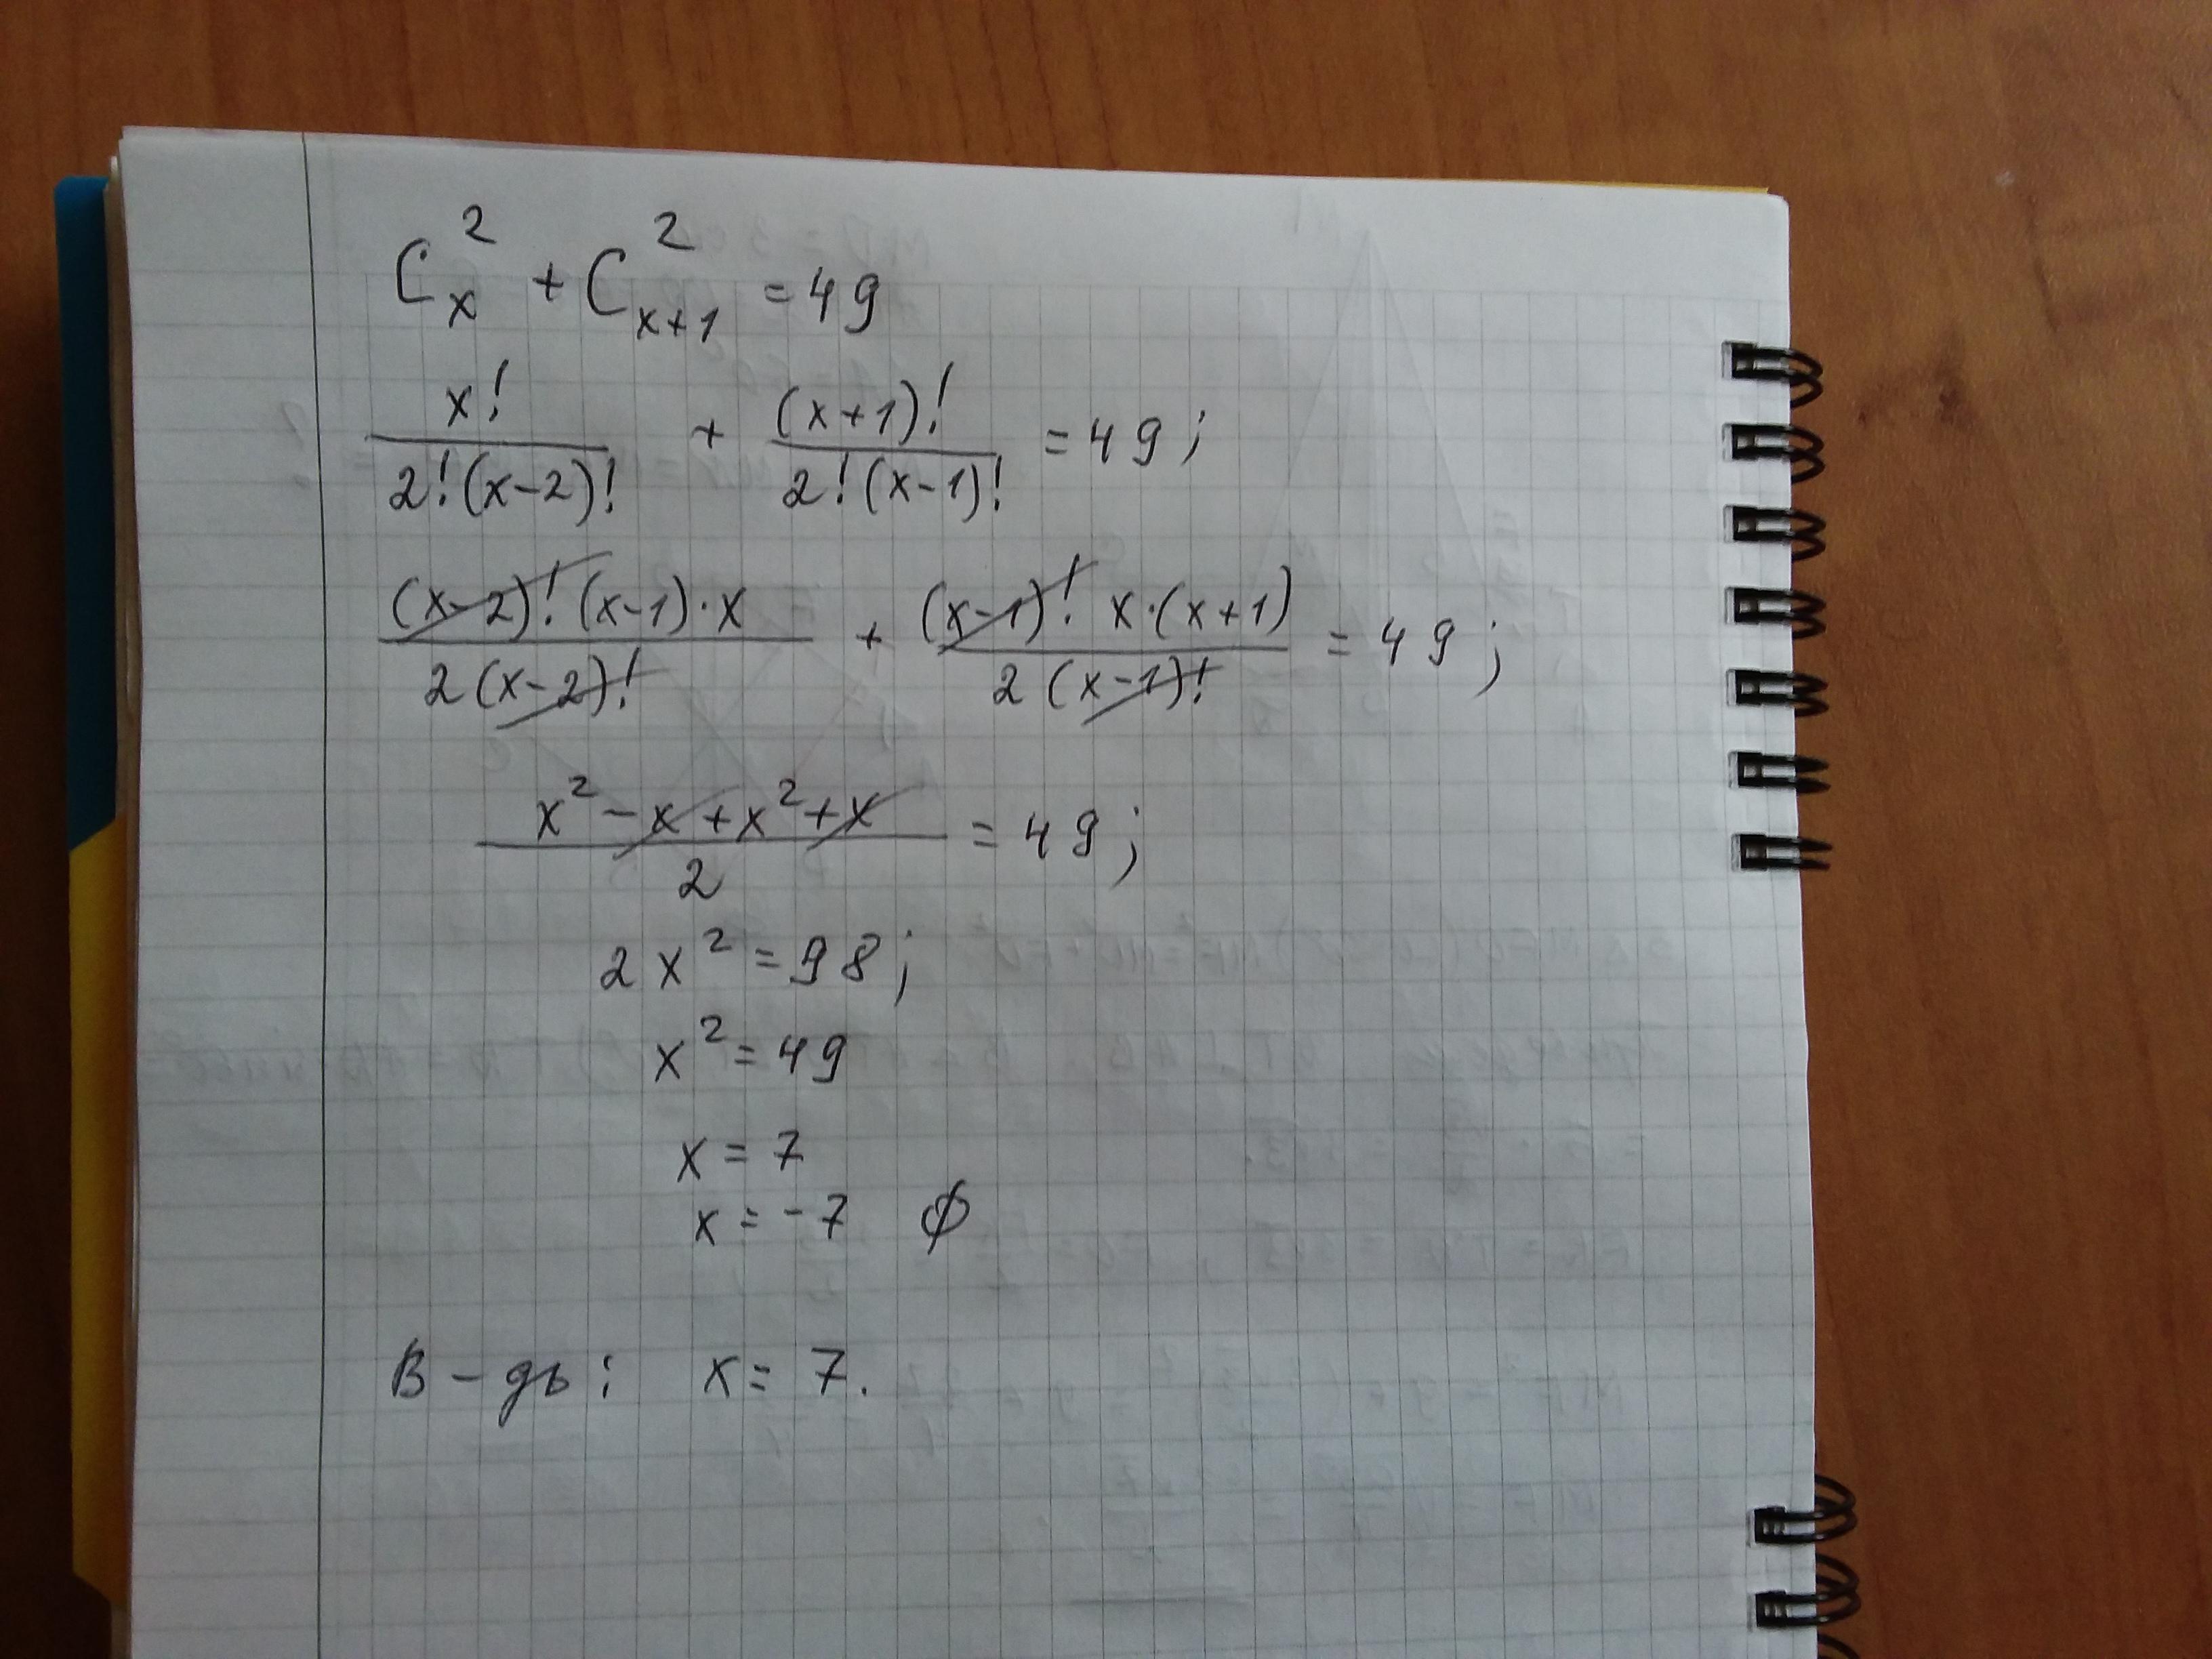 C²ₓ + C²ₓ₊₁ = 49
x! / 2!(x-2)! + (x+1)! / 2!(x-1)! = 49;
(x-2)!(x-1)·x / 2(x-2)! + (x-1)! x·(x+1) / 2(x-1)! = 49;
x² - x + x² + x / 2 = 49;
2x² = 98;
x² = 49
x = 7
x = -7 ∅
В-дь: x = 7.